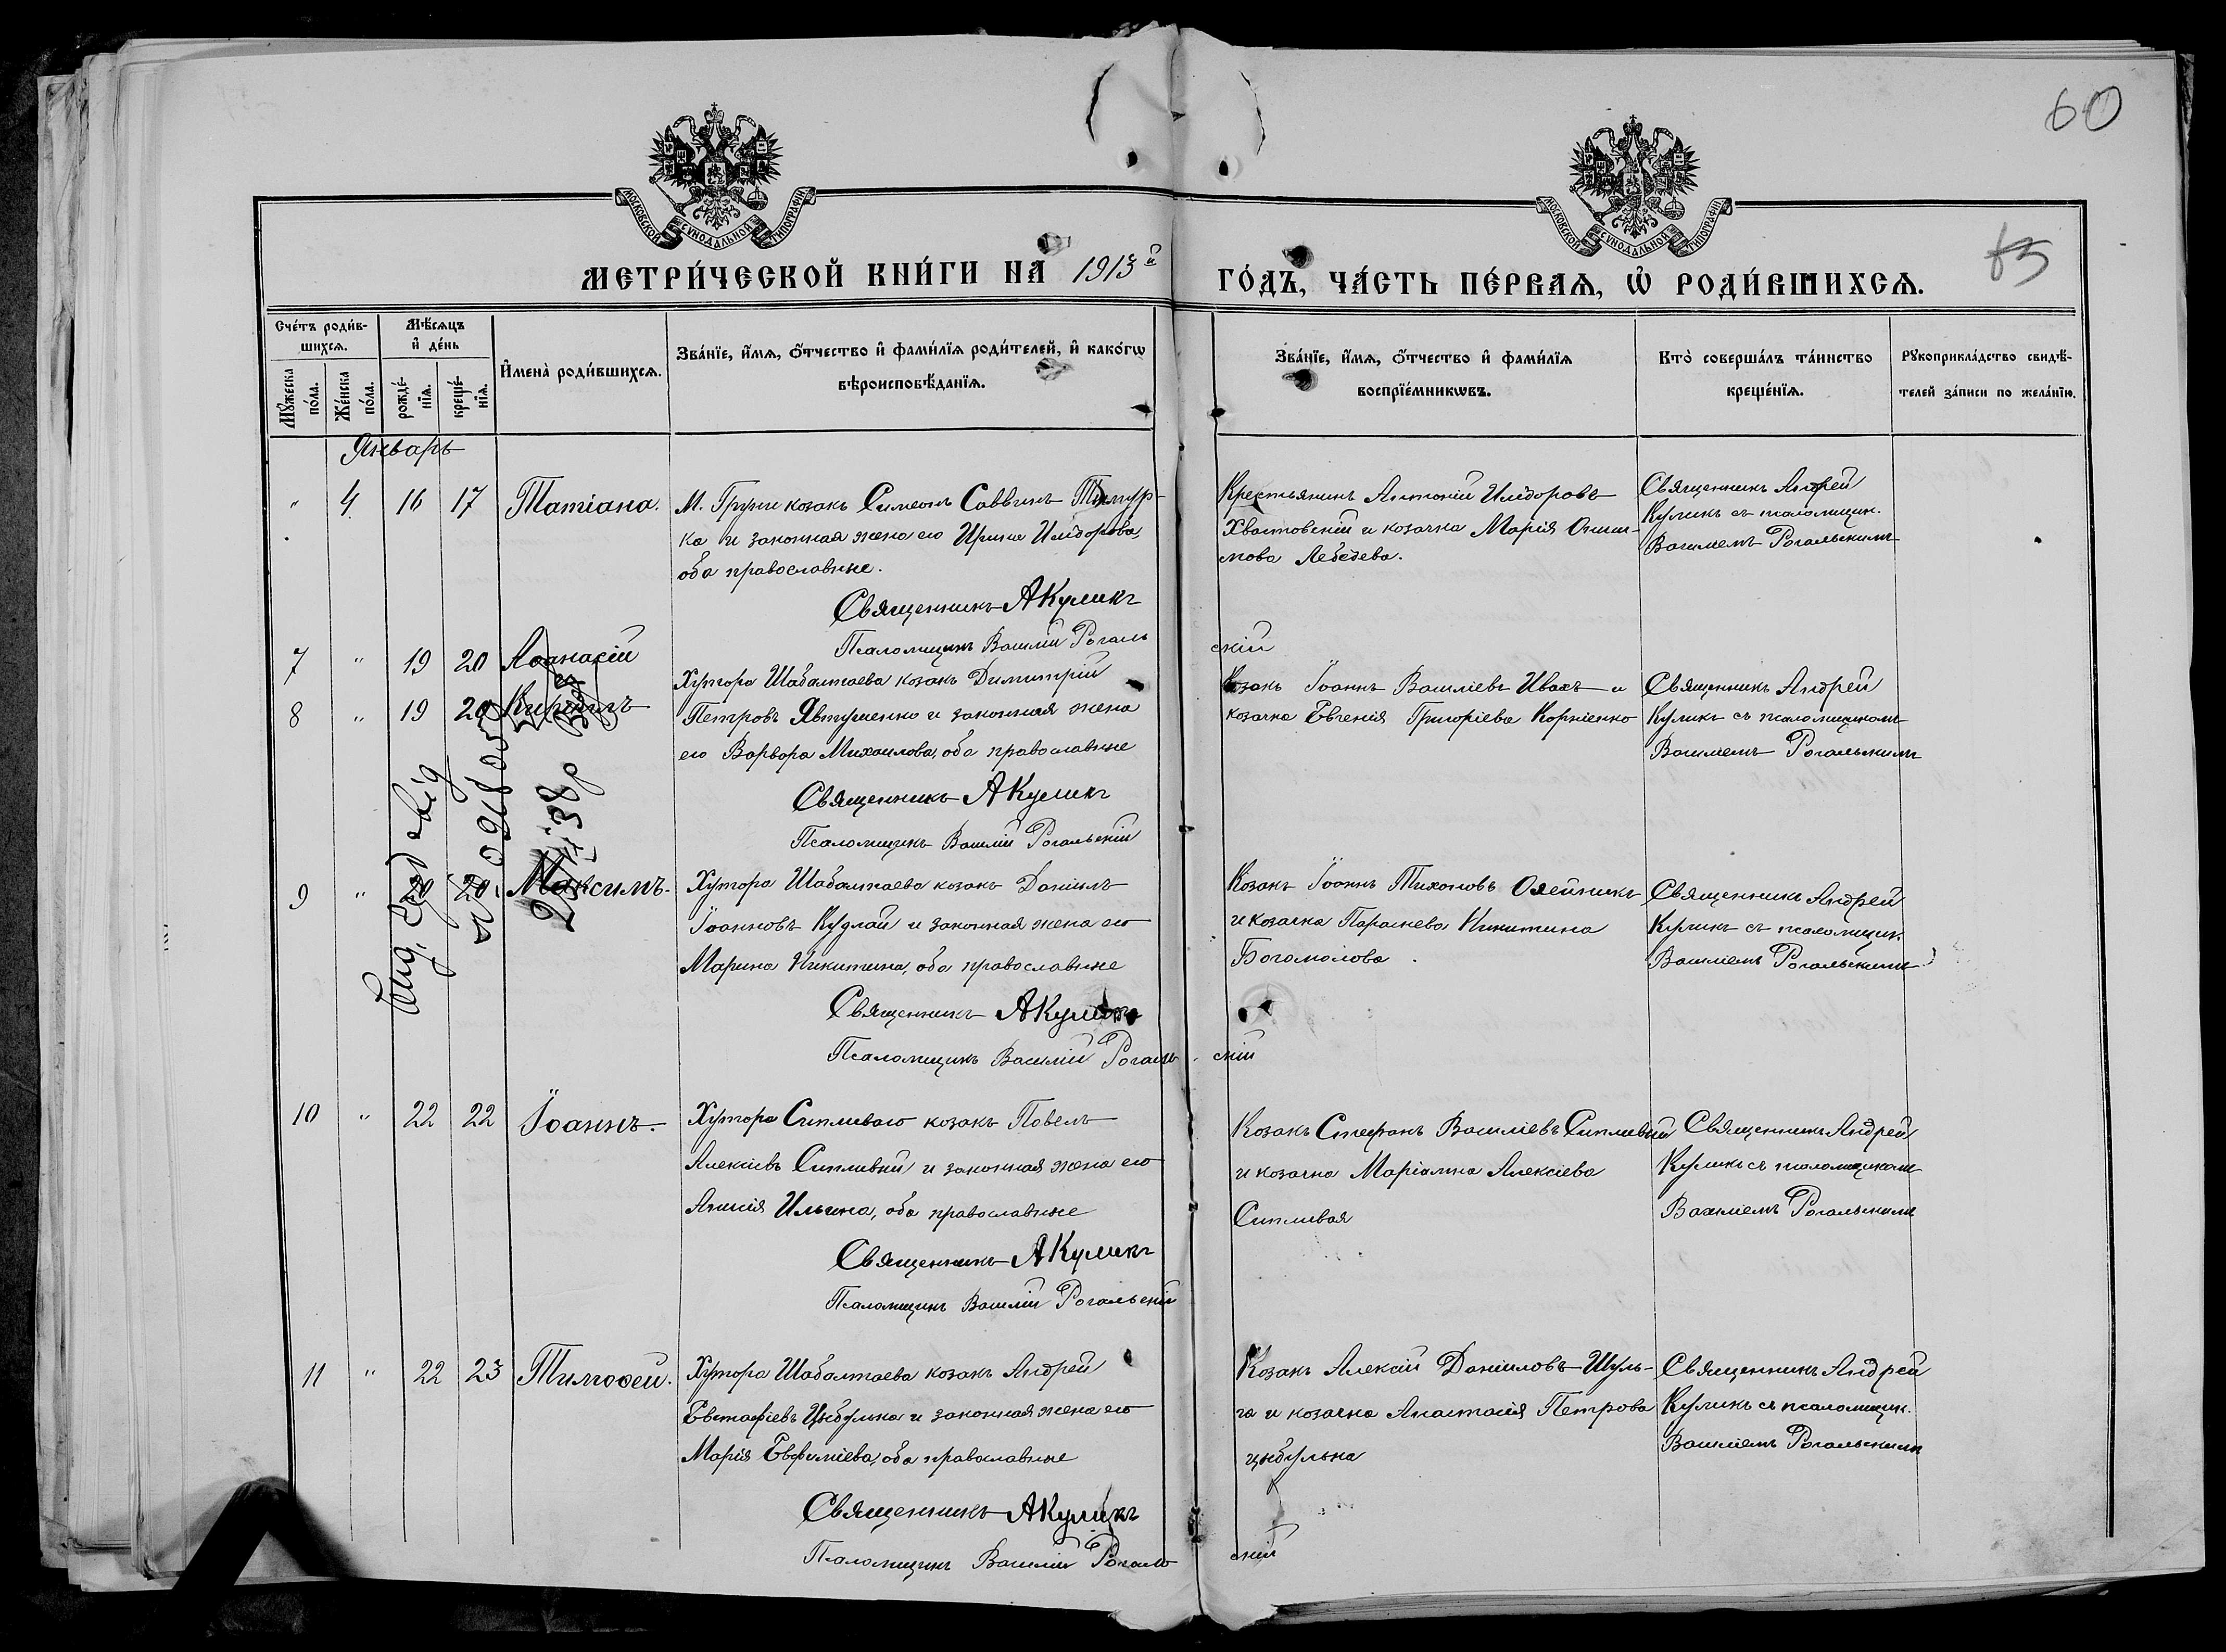 60
83
МОСКОВСКОЙ СѴНОДАЛЬНОЙ ТИПОГРАФІИ
МОСКОВСКОЙ СѴНОДАЛЬНОЙ ТИПОГРАФІИ
МЕТРИ́ЧЕСКОЙ КНИ́ГИ НА 1913й ГО́ДЪ, ЧА́СТЬ ПЕ́РВАѦ, Ѡ РОДИ́ВШИХСѦ.
Сче́тъ роди́в-
шихсѧ.
Мꙋ́жеска по́ла.
Же́нска по́ла.
Мѣ́сѧцъ
и де́нь
рожде́-
нїѧ.
креще́-
нїѧ.
Имена̀ роди́вшихсѧ.
Зва́нїе, и́мѧ, ѻ́тчество и фами́лїѧ роди́телей, и како́гѡ
вѣроисповѣ́данїѧ.
Зва́нїе, и́мѧ, ѻ́тчество и фами́лїѧ
воспрїе́мникѡвъ.
Кто̀ соверша́лъ та́инство
креще́нїѧ.
Рꙋкоприкла́дство свидѣ́-
телей за́писи по жела́нїю.
Январь
" 4 16 17 Татіана.
М. Груни козакъ Симеонъ Саввинъ
ка и законная жена его Ирина Исидорова,
оба православные.
Священникъ АКуликъ
Псаломщикъ Василій Рогаль
скій
Крестьянинъ Антоній Исидоровъ
Хвастовскій и козачка Марія Ониси-
мова Лебедева.
Священникъ Андрей
Куликъ съ псаломщик.
Василіемъ Рогальскимъ
7 " 19 20 Аѳанасій
8 " 19 20 Кириллъ
Хутора Шабалтаева козакъ Димитрій
Петровъ Явтушенко и законная жена
его Варвара Михаилова, оба православные
Священникъ АКуликъ
Псаломщикъ Василій Рогальскій
Козакъ Іоаннъ Василіевъ Ивахъ и
козачка Евгенія Григоріева Корніенко
Священникъ Андрей
Куликъ съ псаломщикомъ
Василіемъ Рогальскимъ
38р
9 " 20 20 Максимъ.
Хутора Шабалтаева козакъ Даніилъ
Іоанновъ Кудлай и законная жена его
Марина Никитина, оба православные
Священникъ АКуликъ
Псаломщикъ Василій Рогаль
скій
Козакъ Іоаннъ Тихоновъ Олейникъ
и козачка Параскева Никитина
Богомолова.
Священникъ Андрей
Куликъ съ псаломщик.
Василіемъ Рогальскимъ
10 " 22 22 Іоаннъ.
Хутора Сипливаго козакъ Павелъ
Алексіевъ Сипливый и законная жена его
Анисія Ильина, оба православные
Священникъ АКуликъ
Псаломщикъ Василій Рогальскій
Козакъ Стефанъ Василіевъ Сипливый
и козачка Маріамна Алексіева
Сипливая
Священникъ Андрей
Куликъ съ псаломщикомъ
Василіемъ Рогальскимъ
11 " 22 23 Тимоѳей.
Хутора Шабалтаева козакъ Андрей
Евстафіевъ Цыбулька и законная жена его
Марія Евфиміева, оба православные
Священникъ АКуликъ
Псаломщикъ Василій Рогаль
скій
Козакъ Алексій Даніиловъ Шуль-
га и козачка Анастасія Петрова
Цыбулька
Священникъ Андрей
Куликъ съ псаломщик.
Василіемъ Рогальскимъ